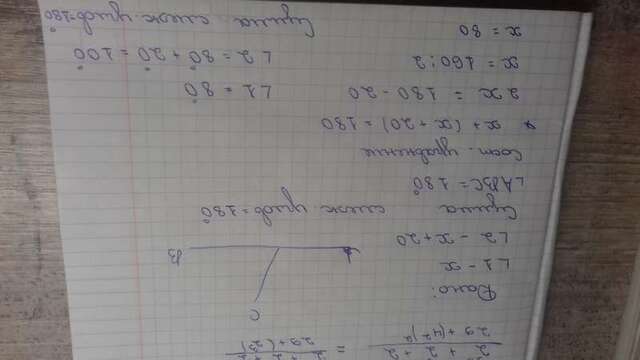 Дано:
∠1 - x
∠2 - x+20
C
B
Сумма смеж. углов = 180°
∠ABC = 180°
Сост. уравнение
x + (x+20) = 180
2x = 180 - 20
x = 160:2
x = 80
∠1 = 80°
∠2 = 80° + 20° = 100°
Сумма смеж. углов = 180°